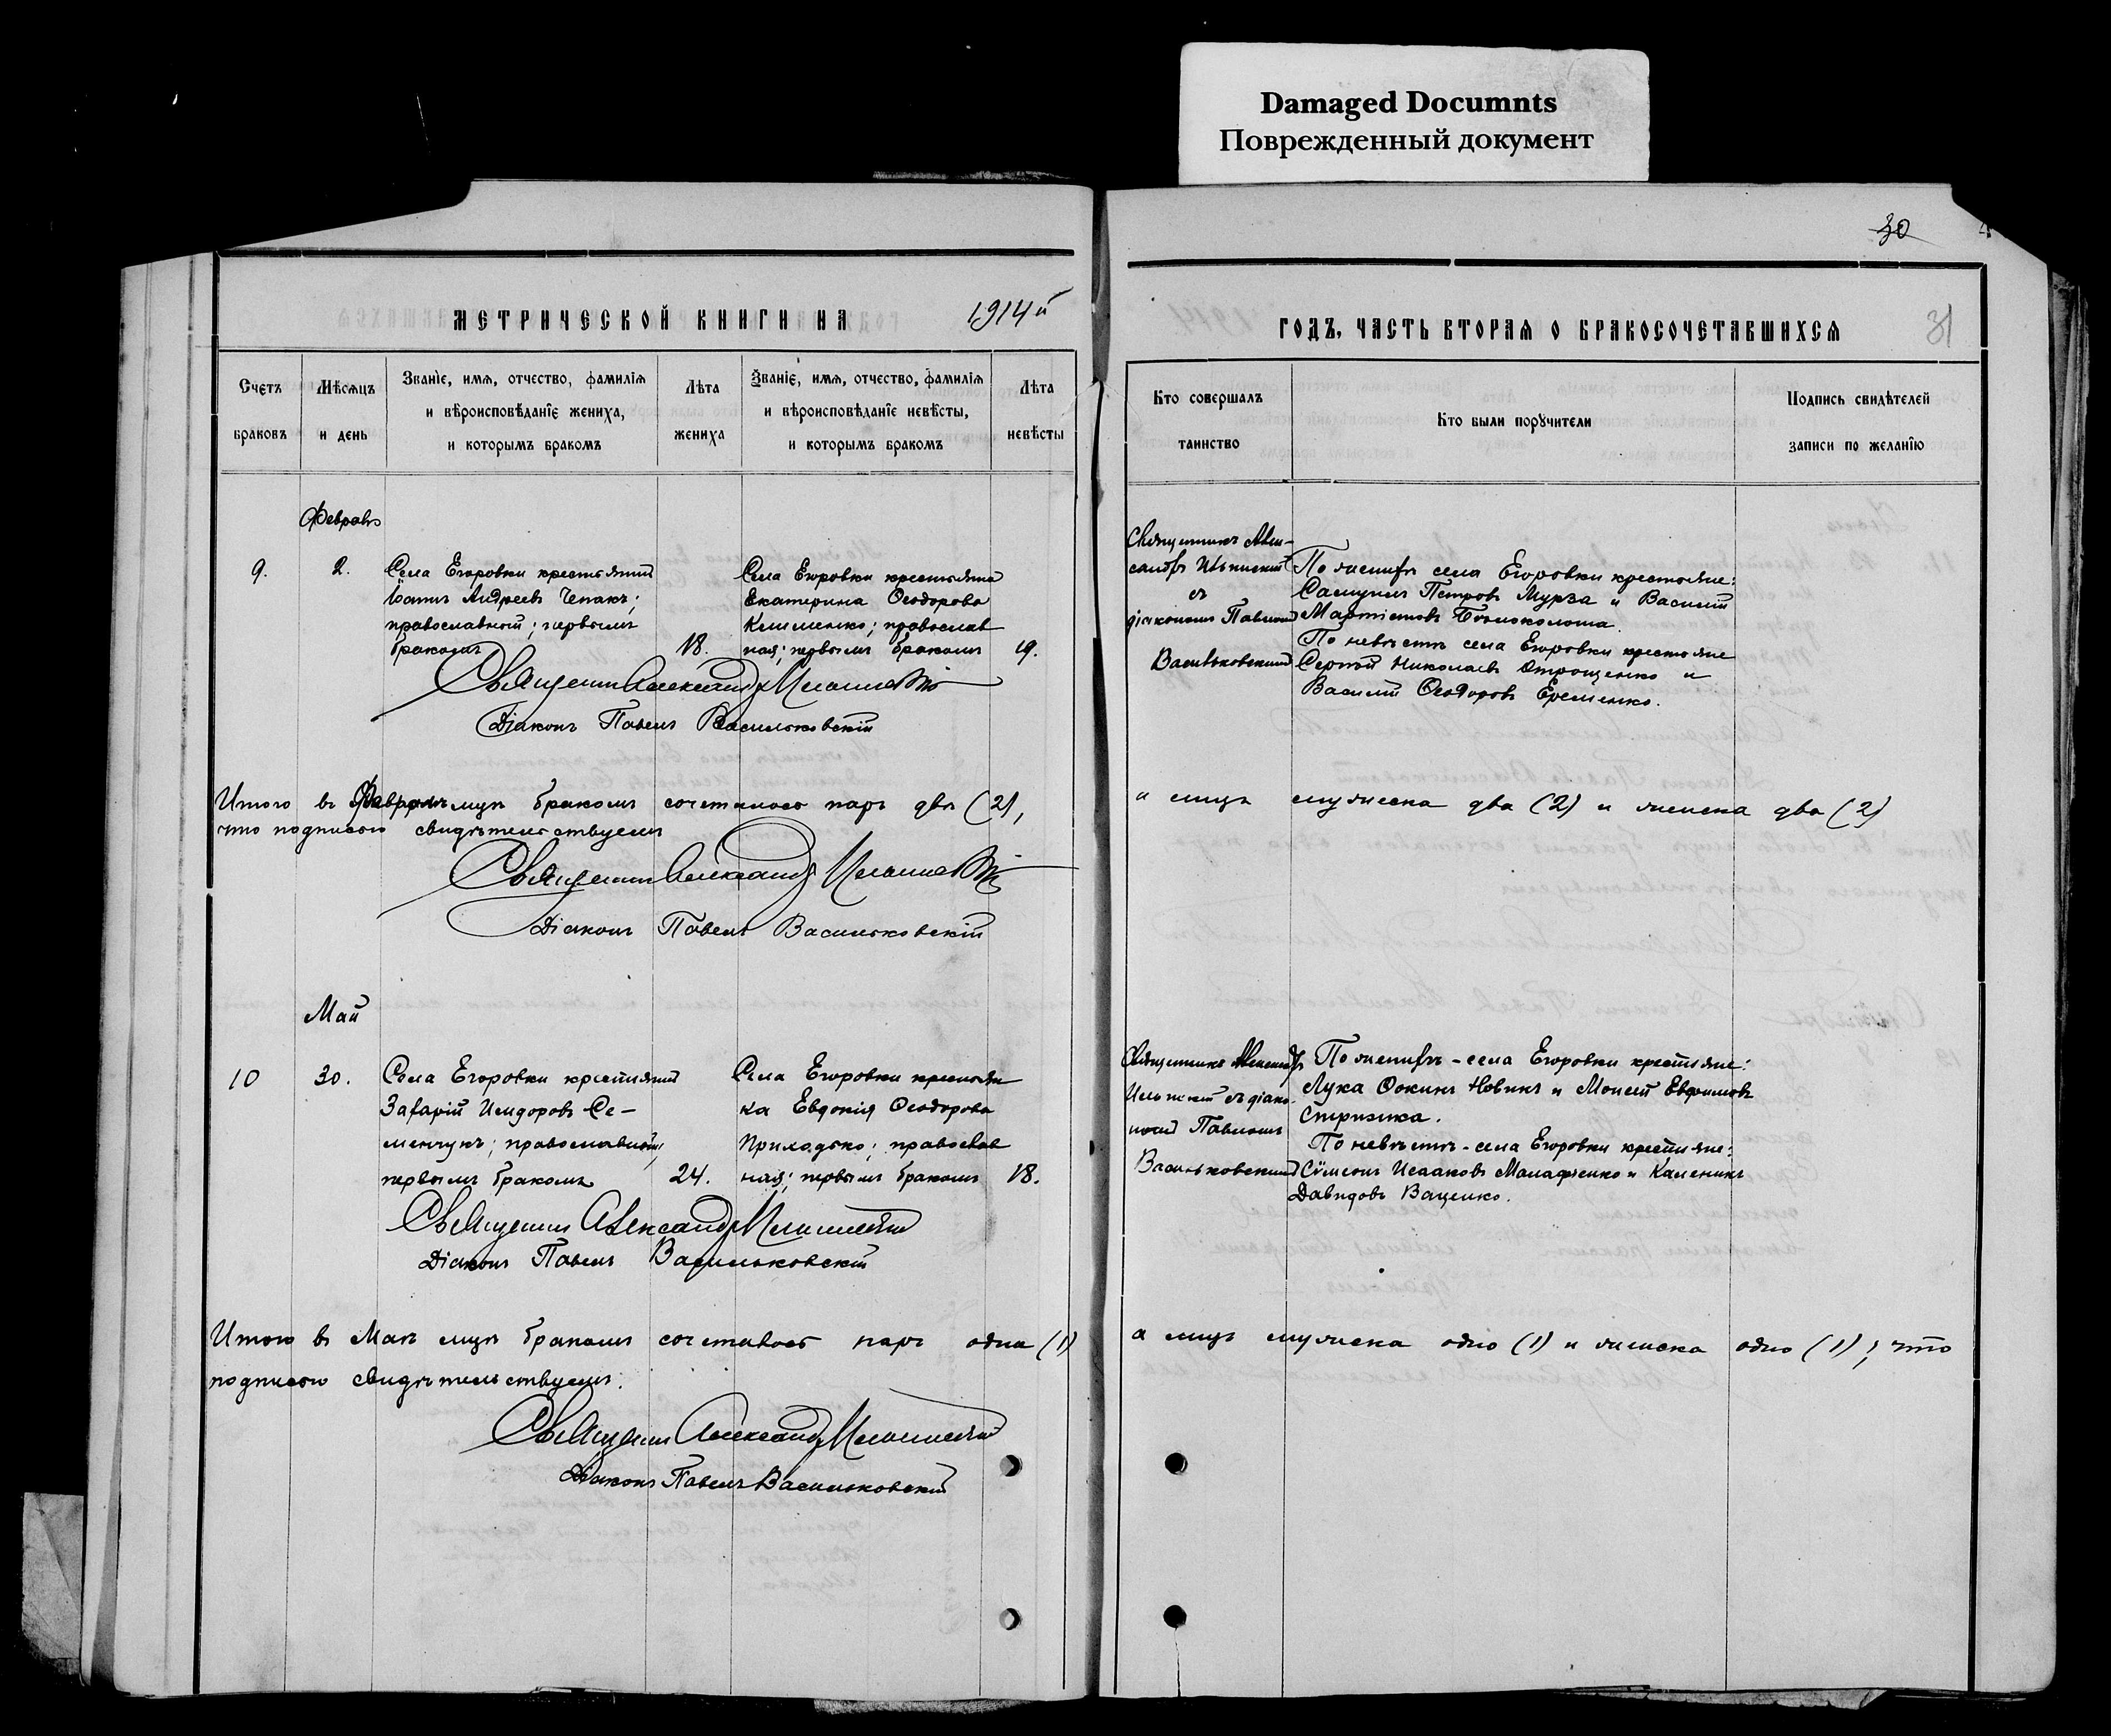 Damaged Documnts
Поврежденный документ
30
31
МЕТРИЧЕСКОЙ КНИГИ НА 1914й
ГОДЪ, ЧАСТЬ ВТОРАЯ О БРАКОСОЧЕТАВШИХСЯ
Счетъ браковъ
Мѣсяцъ и день
Званіе, имя, отчество, фамилія
и вѣроисповѣданіе жениха,
и которымъ бракомъ
Лѣта жениха
Званіе, имя, отчество, фамилія
и вѣроисповѣданіе невѣсты,
и которымъ бракомъ
Лѣта невѣсты
Кто совершалъ
таинство
Кто были поручители
Подпись свидѣтелей
записи по желанію
Февраль
9.
2.
Села Егоровки крестьянинъ
Іоаннъ Андреевъ Чепакъ;
православный; первымъ
бракомъ
18.
Села Егоровки крестьянка
Екатерина Ѳеодорова
Клименко; православ
ная; первымъ бракомъ
19.
Священникъ Алек-
сандръ
съ
діакономъ Павломъ
Васильковскимъ
По женихѣ села Егоровки крестьяне:
Самуилъ Петровъ Мурза и Василій
Мартіновъ
По невѣстѣ села Егоровки крестьяне
Сергѣй Николаевъ Отрощенко и
Василій Ѳеодоровъ Еременко.
Священникъ Александръ
Діаконъ Павелъ Васильковскій
Итого въ Февралѣ мцѣ бракомъ сочеталось паръ двѣ (2),
а лицъ мужеска два (2) и женска два (2)
что подписью свидѣтельствуемъ
Священникъ Александръ
Діаконъ Павелъ Васильковскій
Май
10
30.
Села Егоровки крестьянинъ
Захарій Исидоровъ Се-
менчукъ; православный;
первымъ бракомъ
24.
Села Егоровки крестьян
ка Евдокія Ѳеодорова
Приходько; православ
ная; первымъ бракомъ
18.
Священникъ Александръ
съ діако-
номъ Павломъ
Васильковскимъ
По женихѣ - села Егоровки крестьяне:
Лука Ѳокинъ Новикъ и Моисей Евфимовъ
Стрижка.
По невѣстѣ - села Егоровки крестьяне:
Сѵмеонъ Исааковъ Малафѣенко и Каленикъ
Давидовъ Ваценко.
Священникъ Александръ
Діаконъ Павелъ Васильковскій
Итого въ Маѣ мцѣ бракомъ сочеталось паръ одна (1)
а лицъ мужеска одно (1) и женска одно (1); что
подписью свидѣтельствуемъ.
Священникъ Александръ
Діаконъ Павелъ Васильковскій